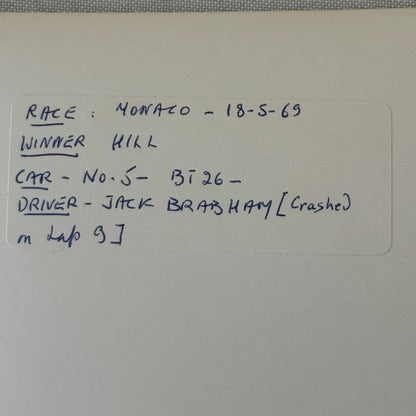 RACE : MONACO - 18-5-69
WINNER HILL
CAR - No. 5 - BT26 -
DRIVER - JACK BRABHAM [Crashed
on Lap 9]